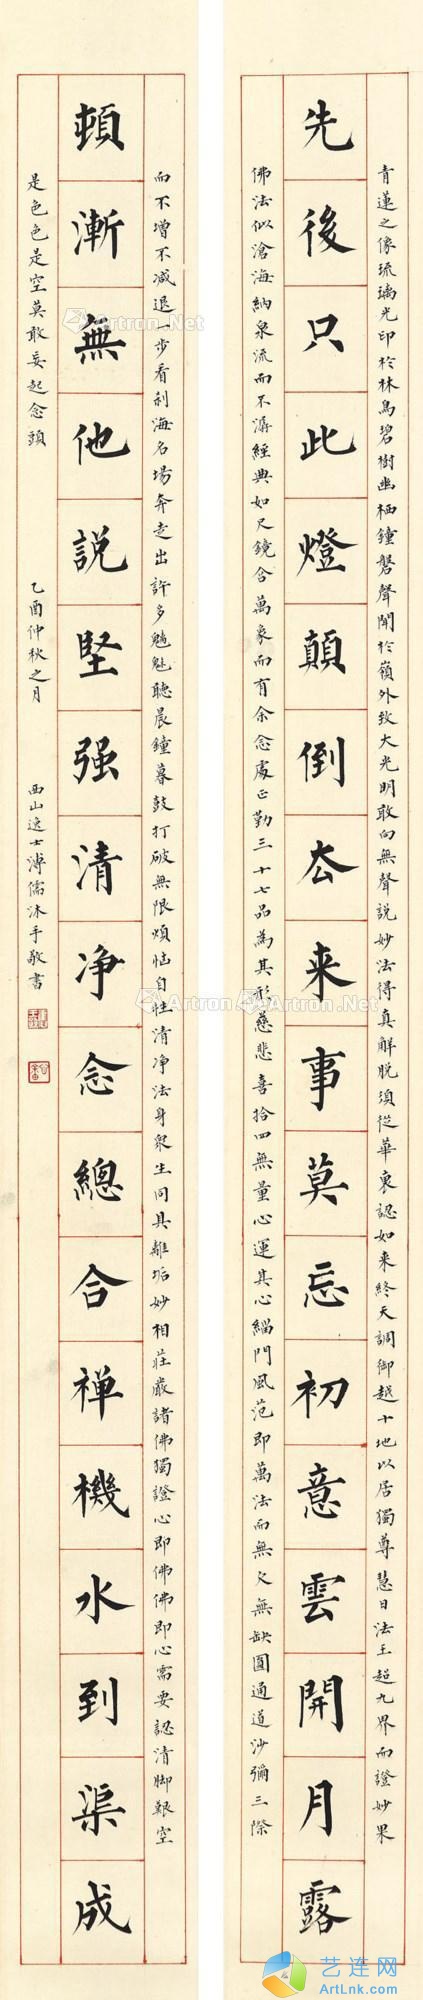 青蓮之像琉璃光印於林鳥碧樹幽栖鐘磬聲聞於嶺外放大光明敢向無聲説妙法得真解脱須從華裏認如来終天調御越十地以居獨尊慧日法王超九界而證妙果
先後只此燈顛倒厺来事莫忘初意雲開月露
佛法似滄海納衆流而不潺經典如尺鏡含萬象而有余念處正勤三十七品為其形慈悲喜捨四無量心運其心緇門風范即萬法而無欠無缺圓通道沙彌三際
而不增不减退一步看利海名場奔走出許多魑魅聽晨鐘暮鼓打破無限煩惱自性清凈法身衆生同具離垢妙相莊嚴諸佛獨證心即佛佛即心需要認清脚艱空
頓漸無他説堅强清凈念總合禅機水到渠成
是色色是空莫敢妄起念頭
乙酉仲秋之月
西山逸士溥儒沐手敬書
Artron.Net
Artron.Net
Artron.Net
Artron.Net
艺连网
ArtLnk.com